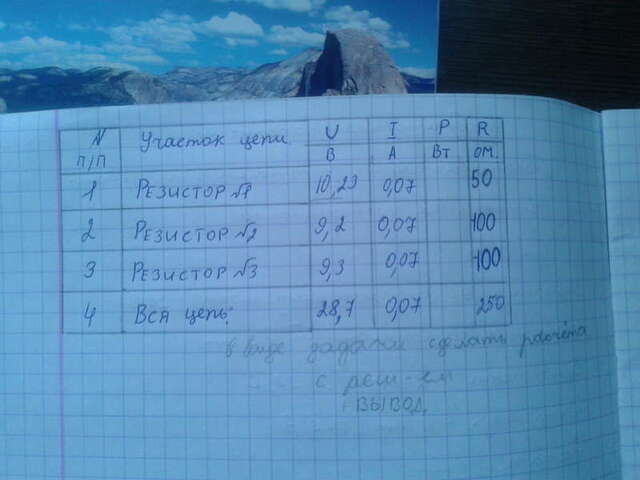 N п/п Участок цепи U I P R
В А Вт ом.
1 Резистор №1 10,23 0,07 50
2 Резистор №2 9,2 0,07 100
3 Резистор №3 9,3 0,07 100
4 Вся цепь: 28,7 0,07 250
в виде задачи сделать расчёта
с реш-ем
вывод